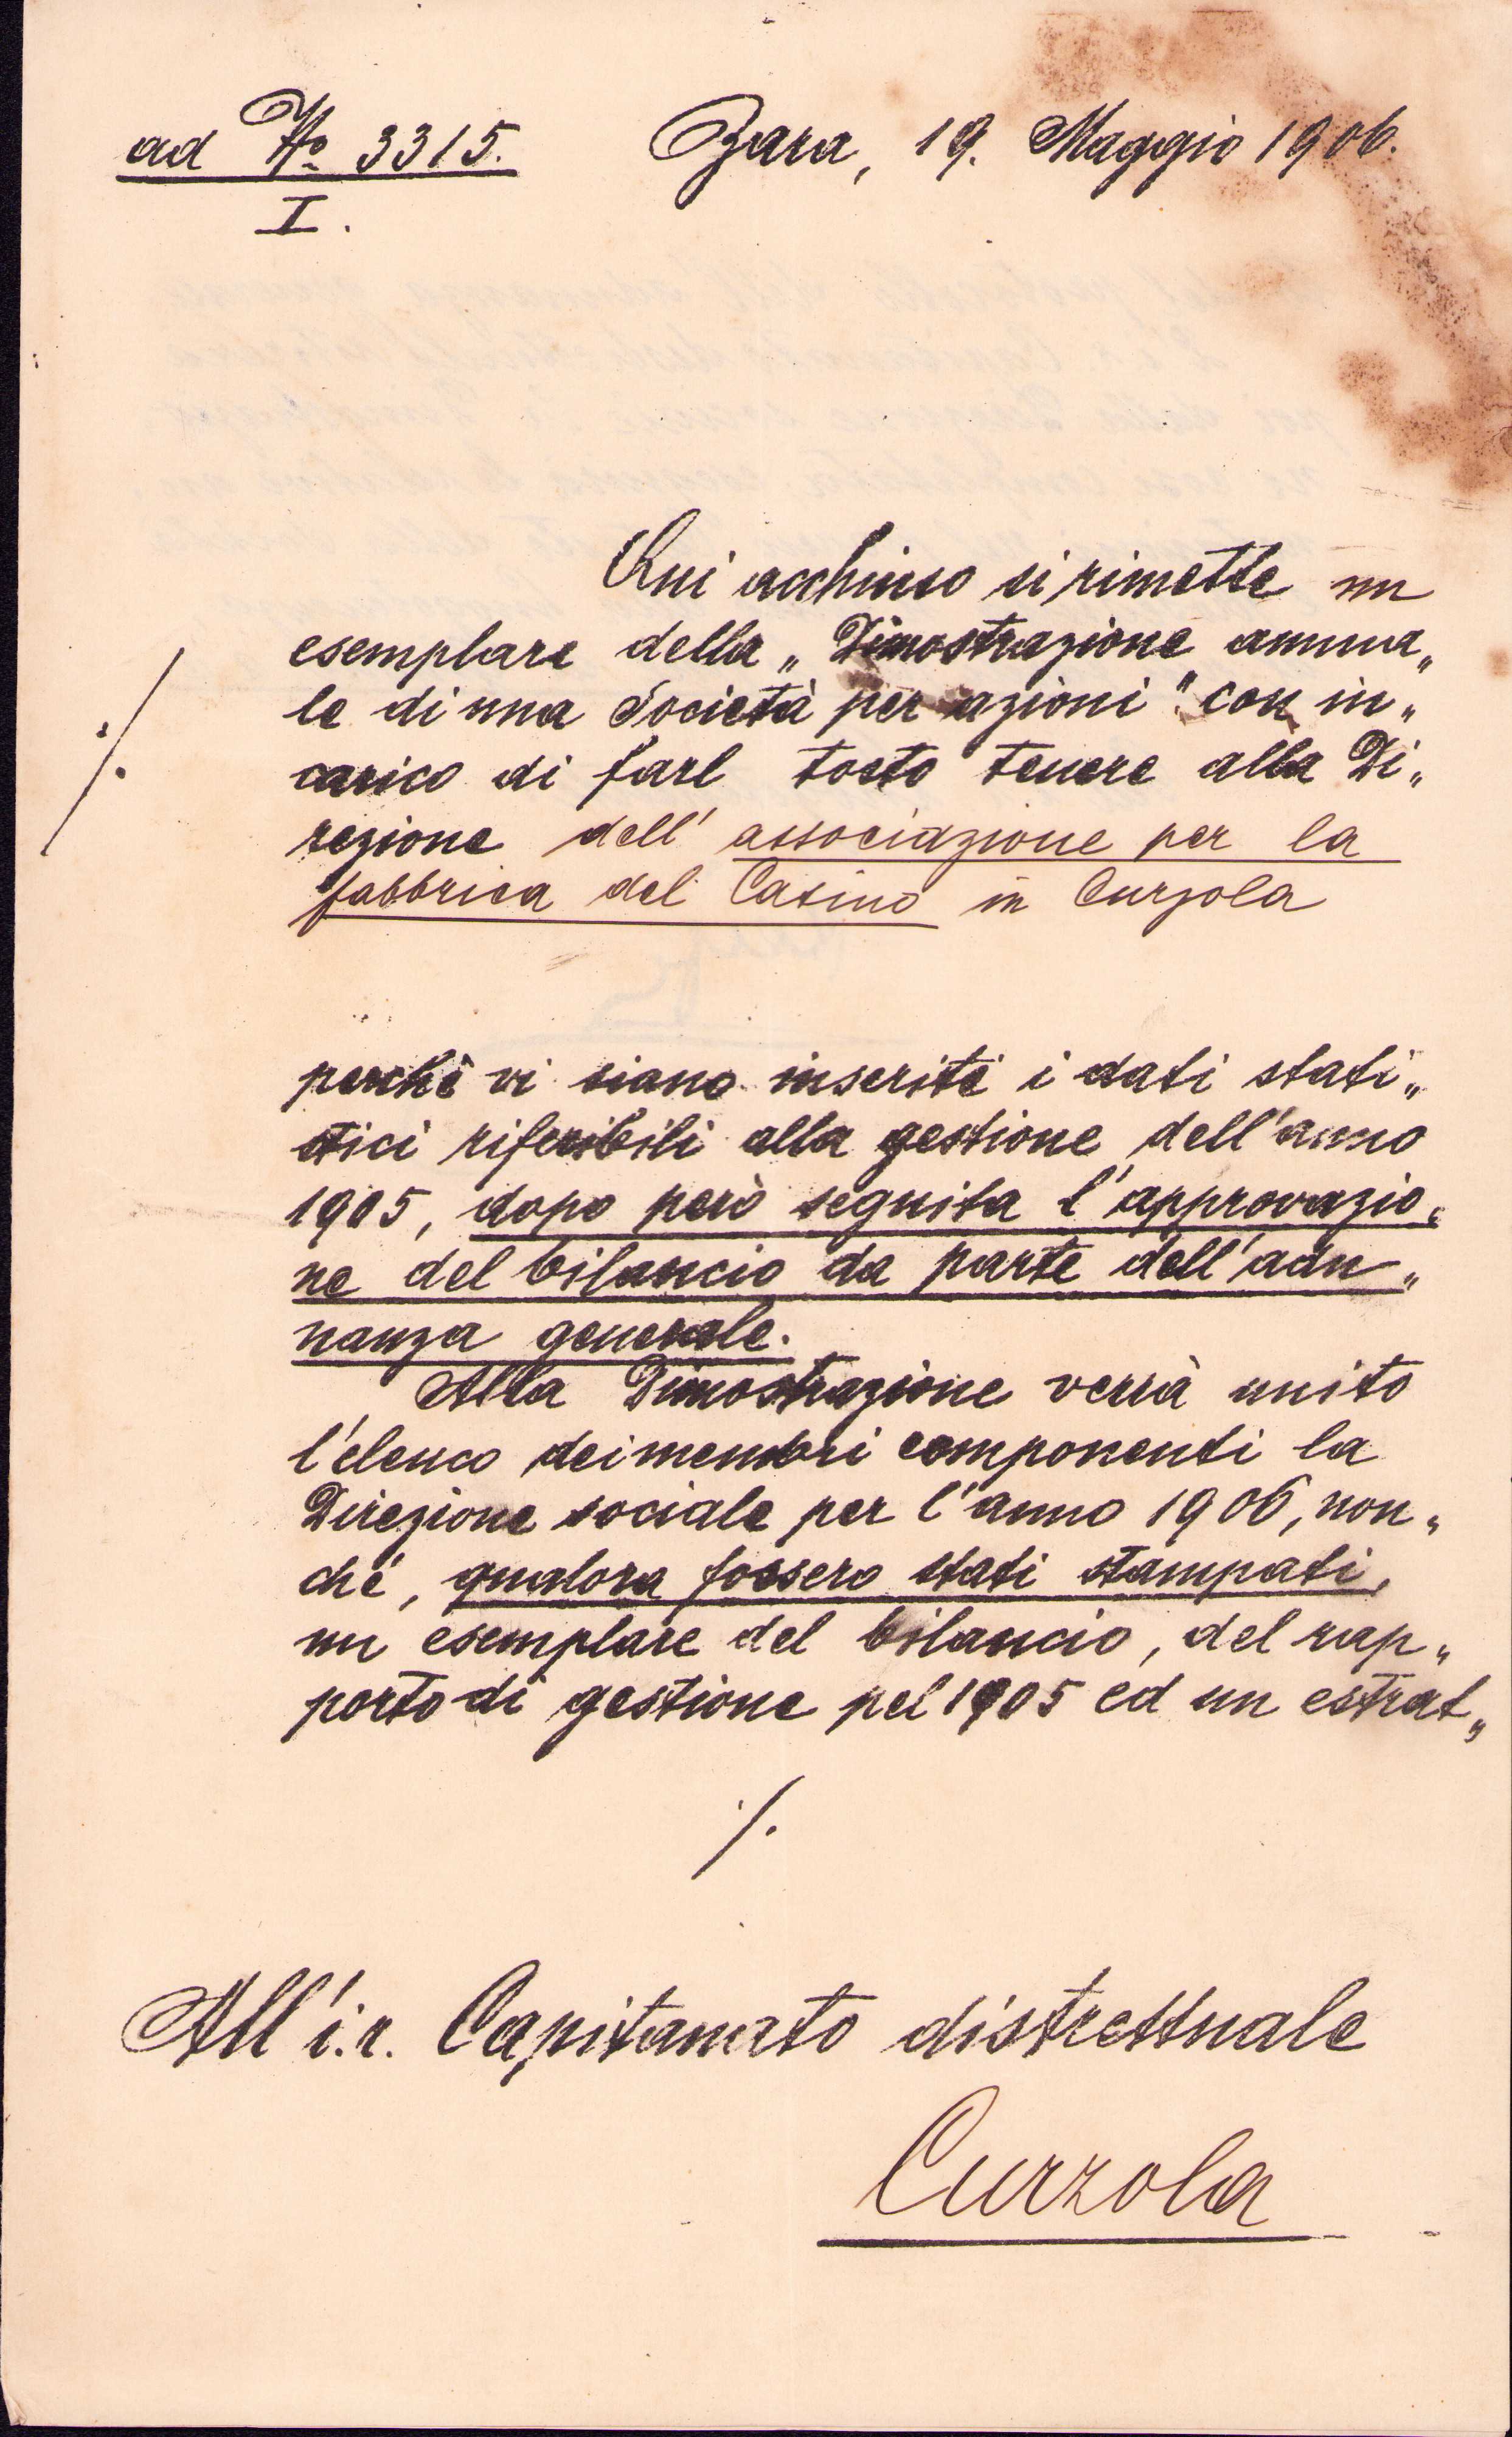 ad No 3315.
I.
Zara, 19. Maggio 1906.
Qui acchiuso si rimette un
esemplare della „Dimostrazione annua„
le di una Società per azioni" con in„
carico di farl tosto tenere alla Di„
rezione dell' associazione per la
fabbrica del Casino in Curzola
perchè vi siano inseriti i dati stati„
stici riferibili alla gestione dell'anno
1905, dopo però seguita l'approvazio„
ne del bilancio da parte dell'adu„
nanza generale.
Alla Dimostrazione verrà unito
l'elenco dei membri componenti la
Direzione sociale per l'anno 1906, non„
ché, qualora fossero stati stampati,
un esemplare del bilancio, del rap„
porto di gestione pel 1905 ed un estrat„
./.
All'i.r. Capitanato distrettuale
Curzola